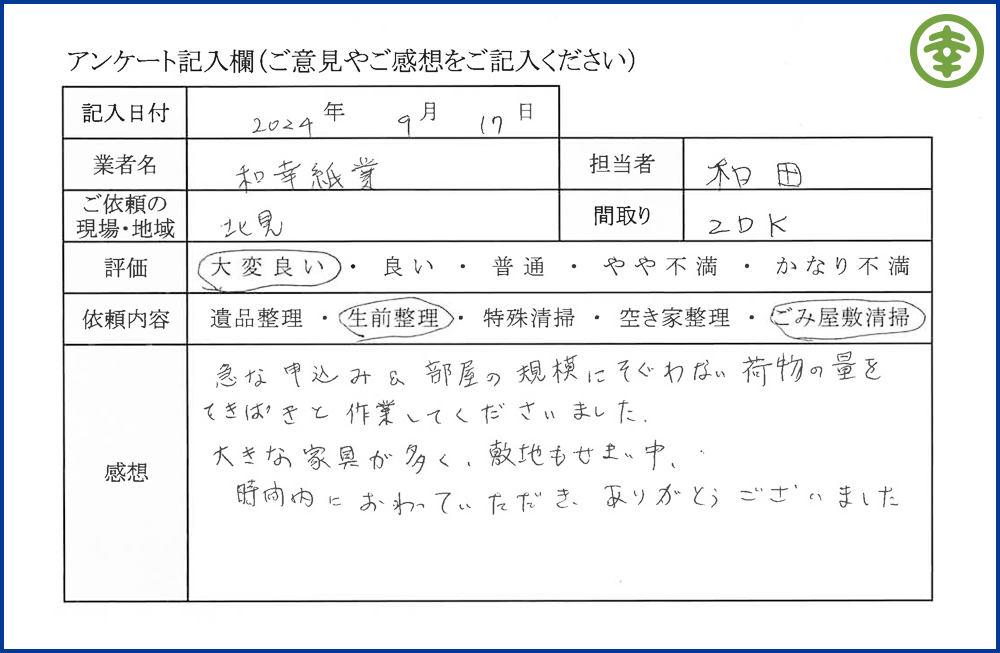 幸
アンケート記入欄(ご意見やご感想をご記入ください)
記入日付 2024年 9月 17日
業者名 和幸紙業 担当者 和田
ご依頼の現場・地域 北見 間取り 2DK
評価 大変良い・良い・普通・やや不満・かなり不満
依頼内容 遺品整理・生前整理・特殊清掃・空き家整理・ごみ屋敷清掃
感想
急な申込み&部屋の規模にそぐわない荷物の量を
てきぱきと作業してくださいました.
大きな家具が多く、敷地もせまい中、
時間内におわっていただき、ありがとうございました